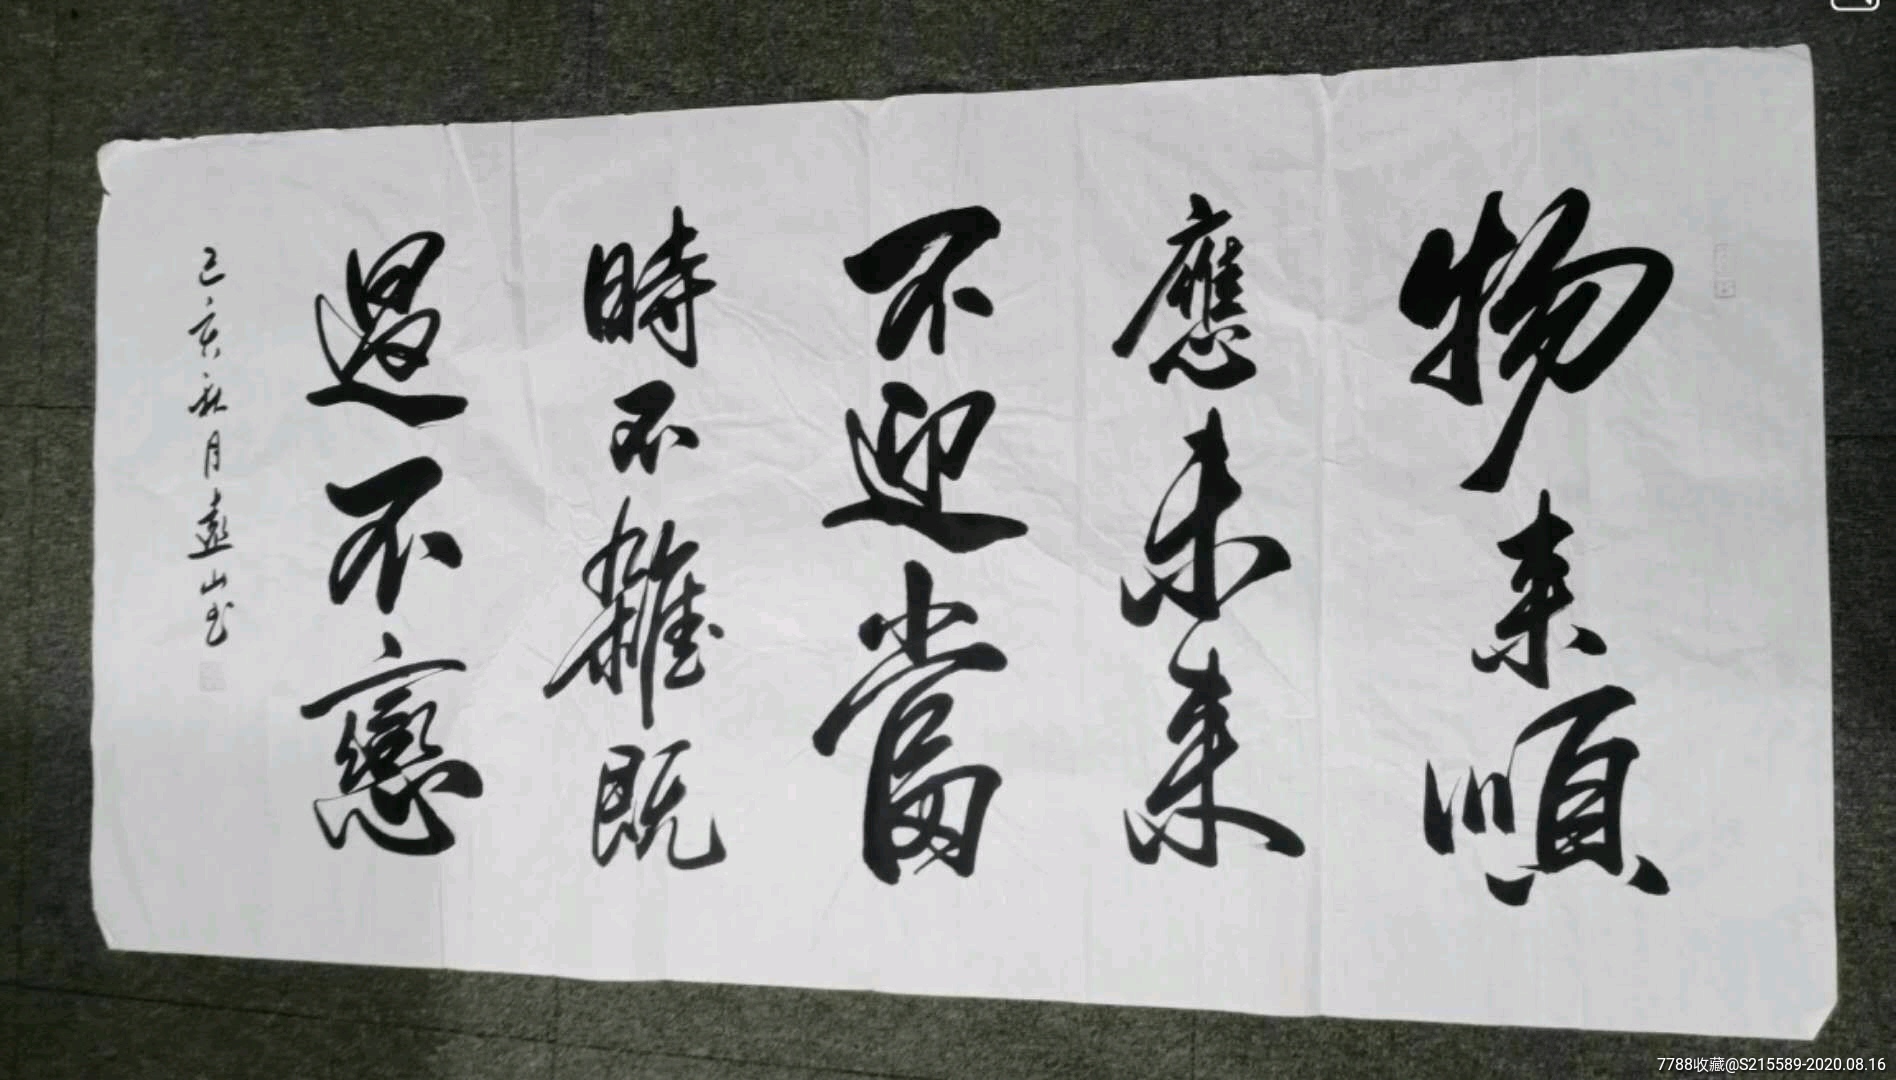 物来順
應未来
不迎當
時不雜既
過不戀
己亥秋月遠山书
7788收藏@S215589-2020.08.16